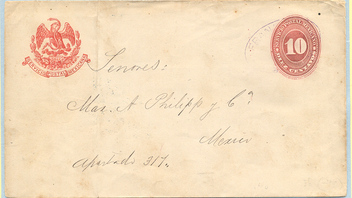 10
Senores:
Max. A Philipp y Cª
Mexico
Apartado 317.